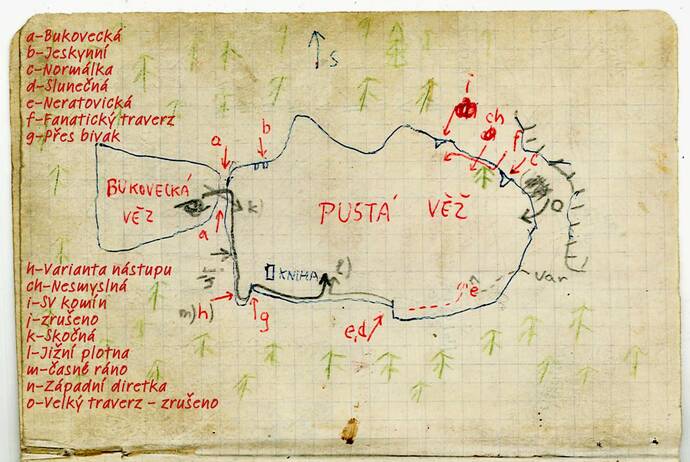 a-Bukovecká
b-Jeskynní
c-Normálka
d-Slunečná
e-Neratovická
f-Fanatický traverz
g-Přes bivak
S
i
ch
f
c
a
b
BUKOVECKÁ
VĚŽ
PUSTÁ VĚŽ
k)
o
a
KNIHA
l)
e
var
h-Varianta nástupu
ch-Nesmyslná
i-SV komín
j-zrušeno
k-Skočná
l-Jižní plotna
m-časné ráno
n-Západní diretka
o-Velký traverz - zrušeno
m)h)
g
e,d